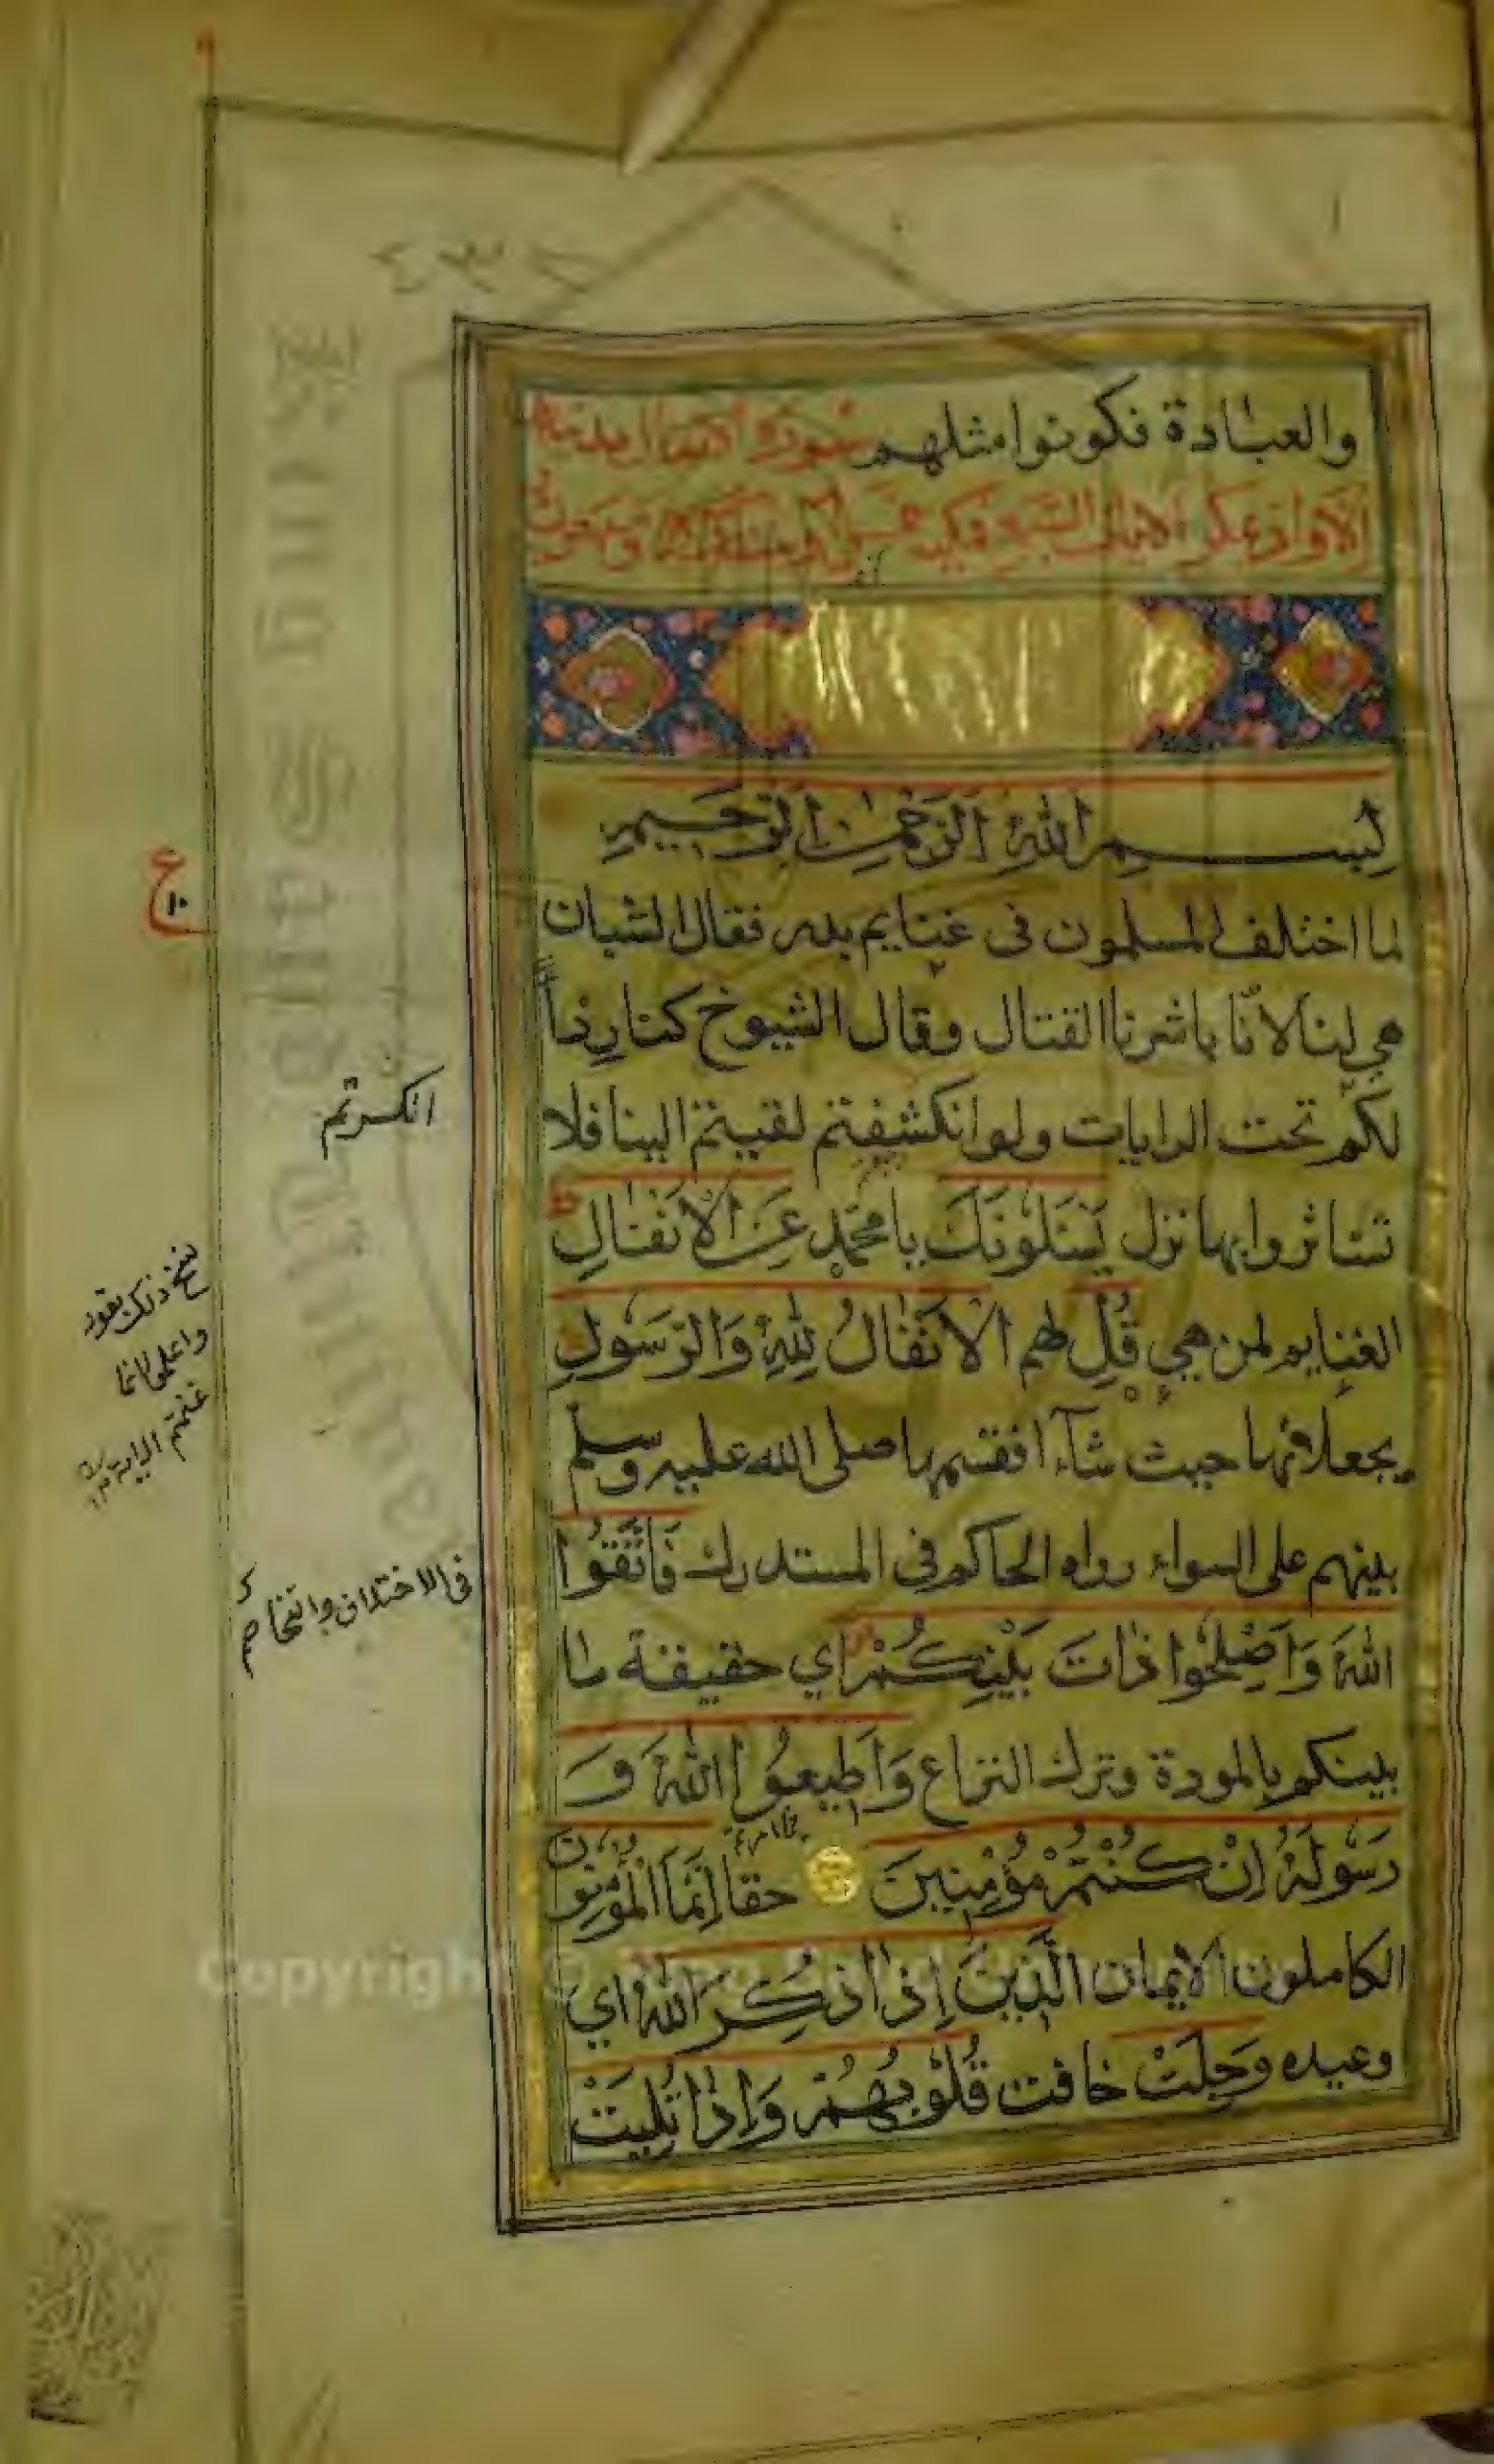 والعبادة فكونوا مثلهم سورة الانفال مدنية
الا واذ يمكر الايات السبع فمكية خمس او ست او سبع وسبعون اية
بسم الله الرحمن الرحيم
لما اختلف المسلمون فى غنايم بدر فقال الشبان
هي لنا لانّا باشرنا القتال وقال الشيوخ كنا رداً
لكم تحت الرايات ولو انكشفتم لفيتم الينا فلا
تستاثروا بها نزل يَسْئَلُونَكَ يا محمد عَنِ الْاَنْفَالِ
الغنايم لمن هي قُلِ لهم الْاَنْفَالُ لِلّٰهِ وَالرَّسُولِ
يجعلانها حيث شآءا فقسمها صلى الله عليه وسلم
بينهم على السواء رواه الحاكم فى المستدرك فَاتَّقُوا
اللهَ وَاَصْلِحُوا ذَاتَ بَيْنِكُمْ اي حقيقة ما
بينكم بالمودة وترك النزاع وَاَطِيعُوا اللهَ وَ
رَسُولَهُ اِنْ كُنْتُمْ مُؤْمِنِينَ حقا اِنَّمَا الْمُؤْمِنُونَ
الكاملون الايمان الَّذِينَ اِذَا ذُكِرَ اللهُ اي
وعيده وَجِلَتْ خافت قُلُوبُهُمْ وَاِذَا تُلِيَتْ
ع
١٠
انكسرتم
نسخ ذلك بقوله
واعلموا انما
غنمتم الاية
فى الاختلاف والتخاصم
King Saud University
Copyright © King Saud University